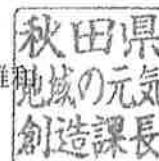 秋田県
地域の元気
創造課長